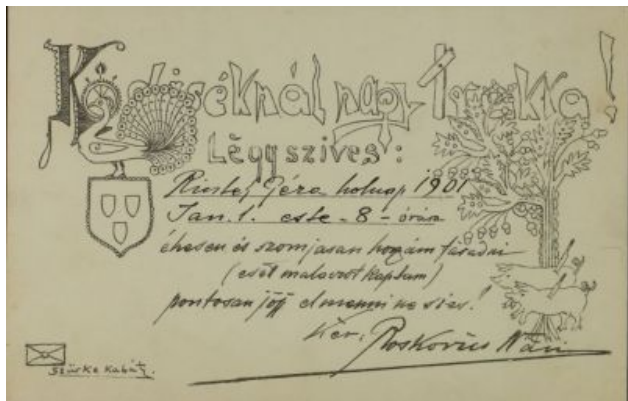 nagy !
Légy szives:
Géza holnap 1901
Jan. 1. este - 8 - órára
éhesen és szomjasan hozám fáradni
malaczot kaptam)
pontosan jőjj elmenni ne siess!
Kér. Roskovics
Szürke Kabát.